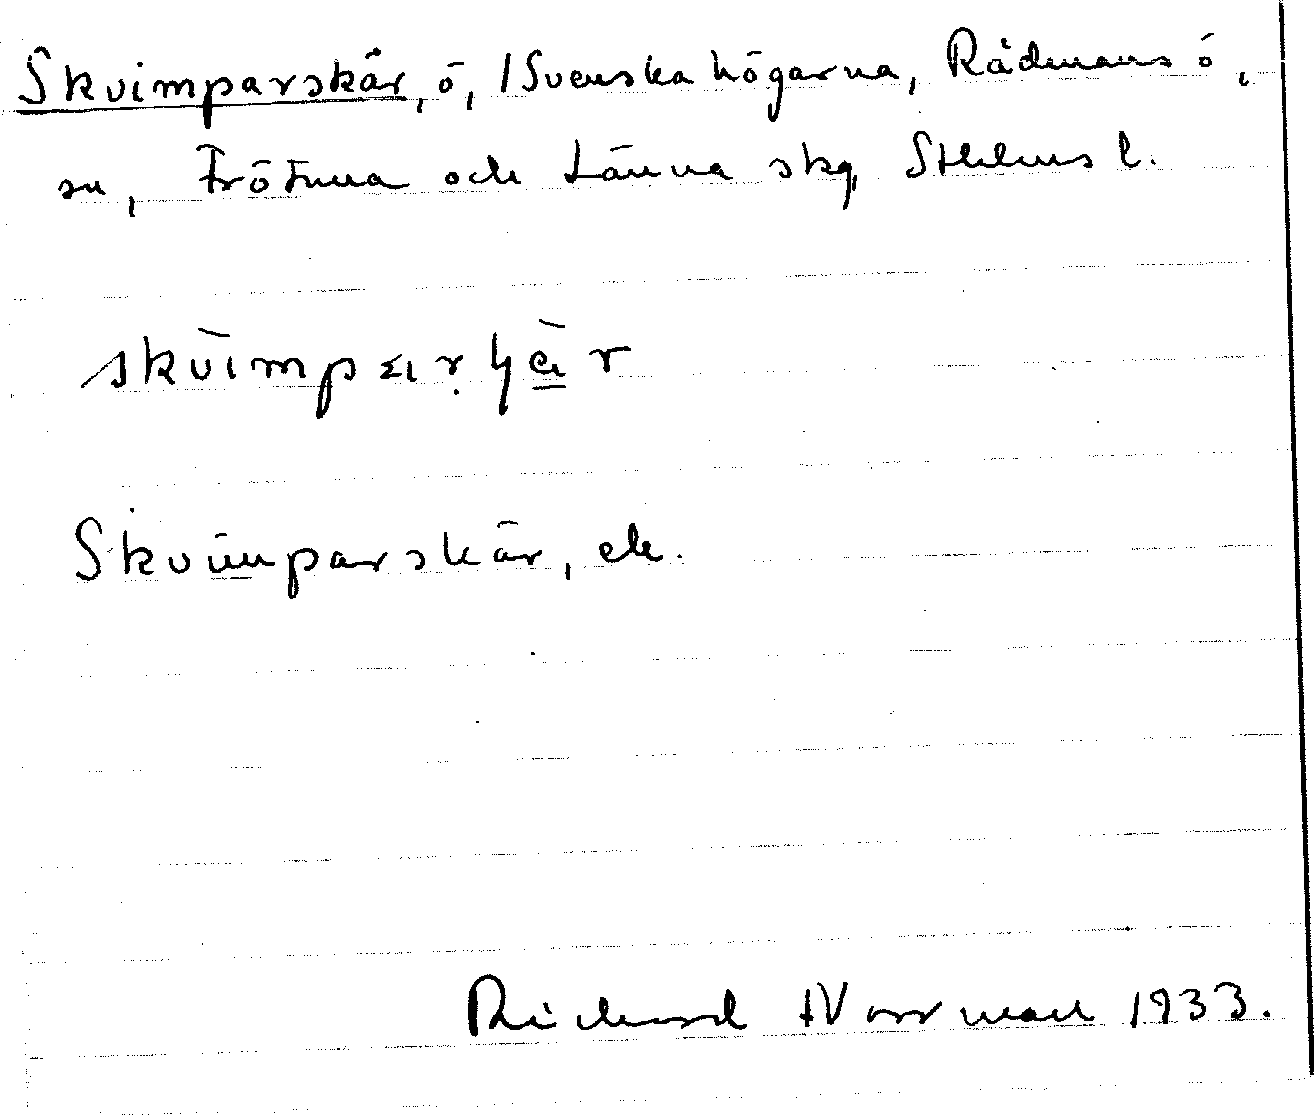 Skvimparskär, ö, i Svenska högarna, Rådmansö,
sn, Frötuna och Länna skg, Sthlms l.
skvimparskär, ek.
Rickard Norrman 1933.